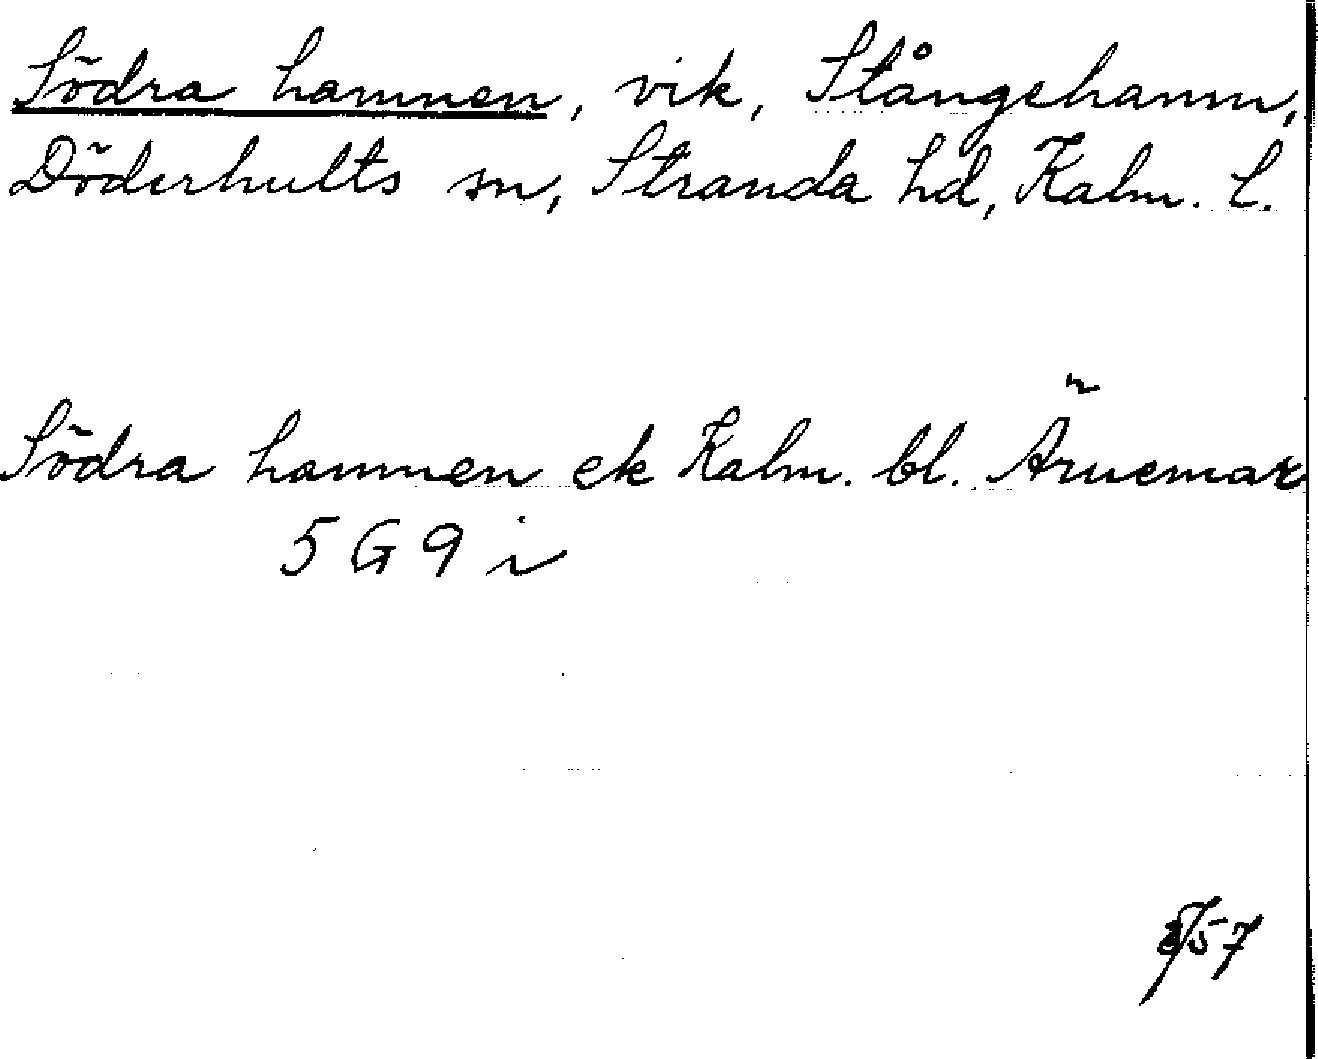 Södra hamnen, vik, Stångehamn,
Döderhults sn, Stranda hd, Kalm. l.
Södra hamnen ek Kalm. bl. Ärnemar
5 G 9 i
57